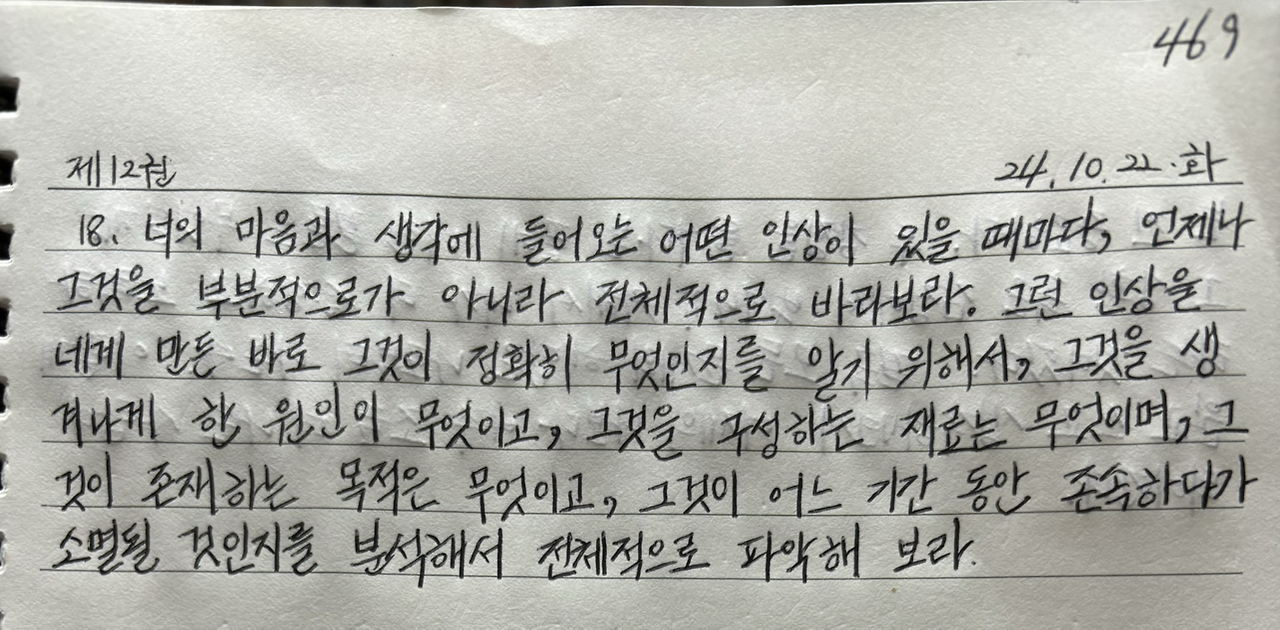 469
제12권 24.10.22.화
18. 너의 마음과 생각에 들어오는 어떤 인상이 있을 때마다, 언제나
그것을 부분적으로가 아니라 전체적으로 바라보라. 그런 인상을
네게 만든 바로 그것이 정확히 무엇인지를 알기 위해서, 그것을 생
겨나게 한 원인이 무엇이고, 그것을 구성하는 재료는 무엇이며, 그
것이 존재하는 목적은 무엇이고, 그것이 어느 기간 동안 존속하다가
소멸될 것인지를 분석해서 전체적으로 파악해 보라.